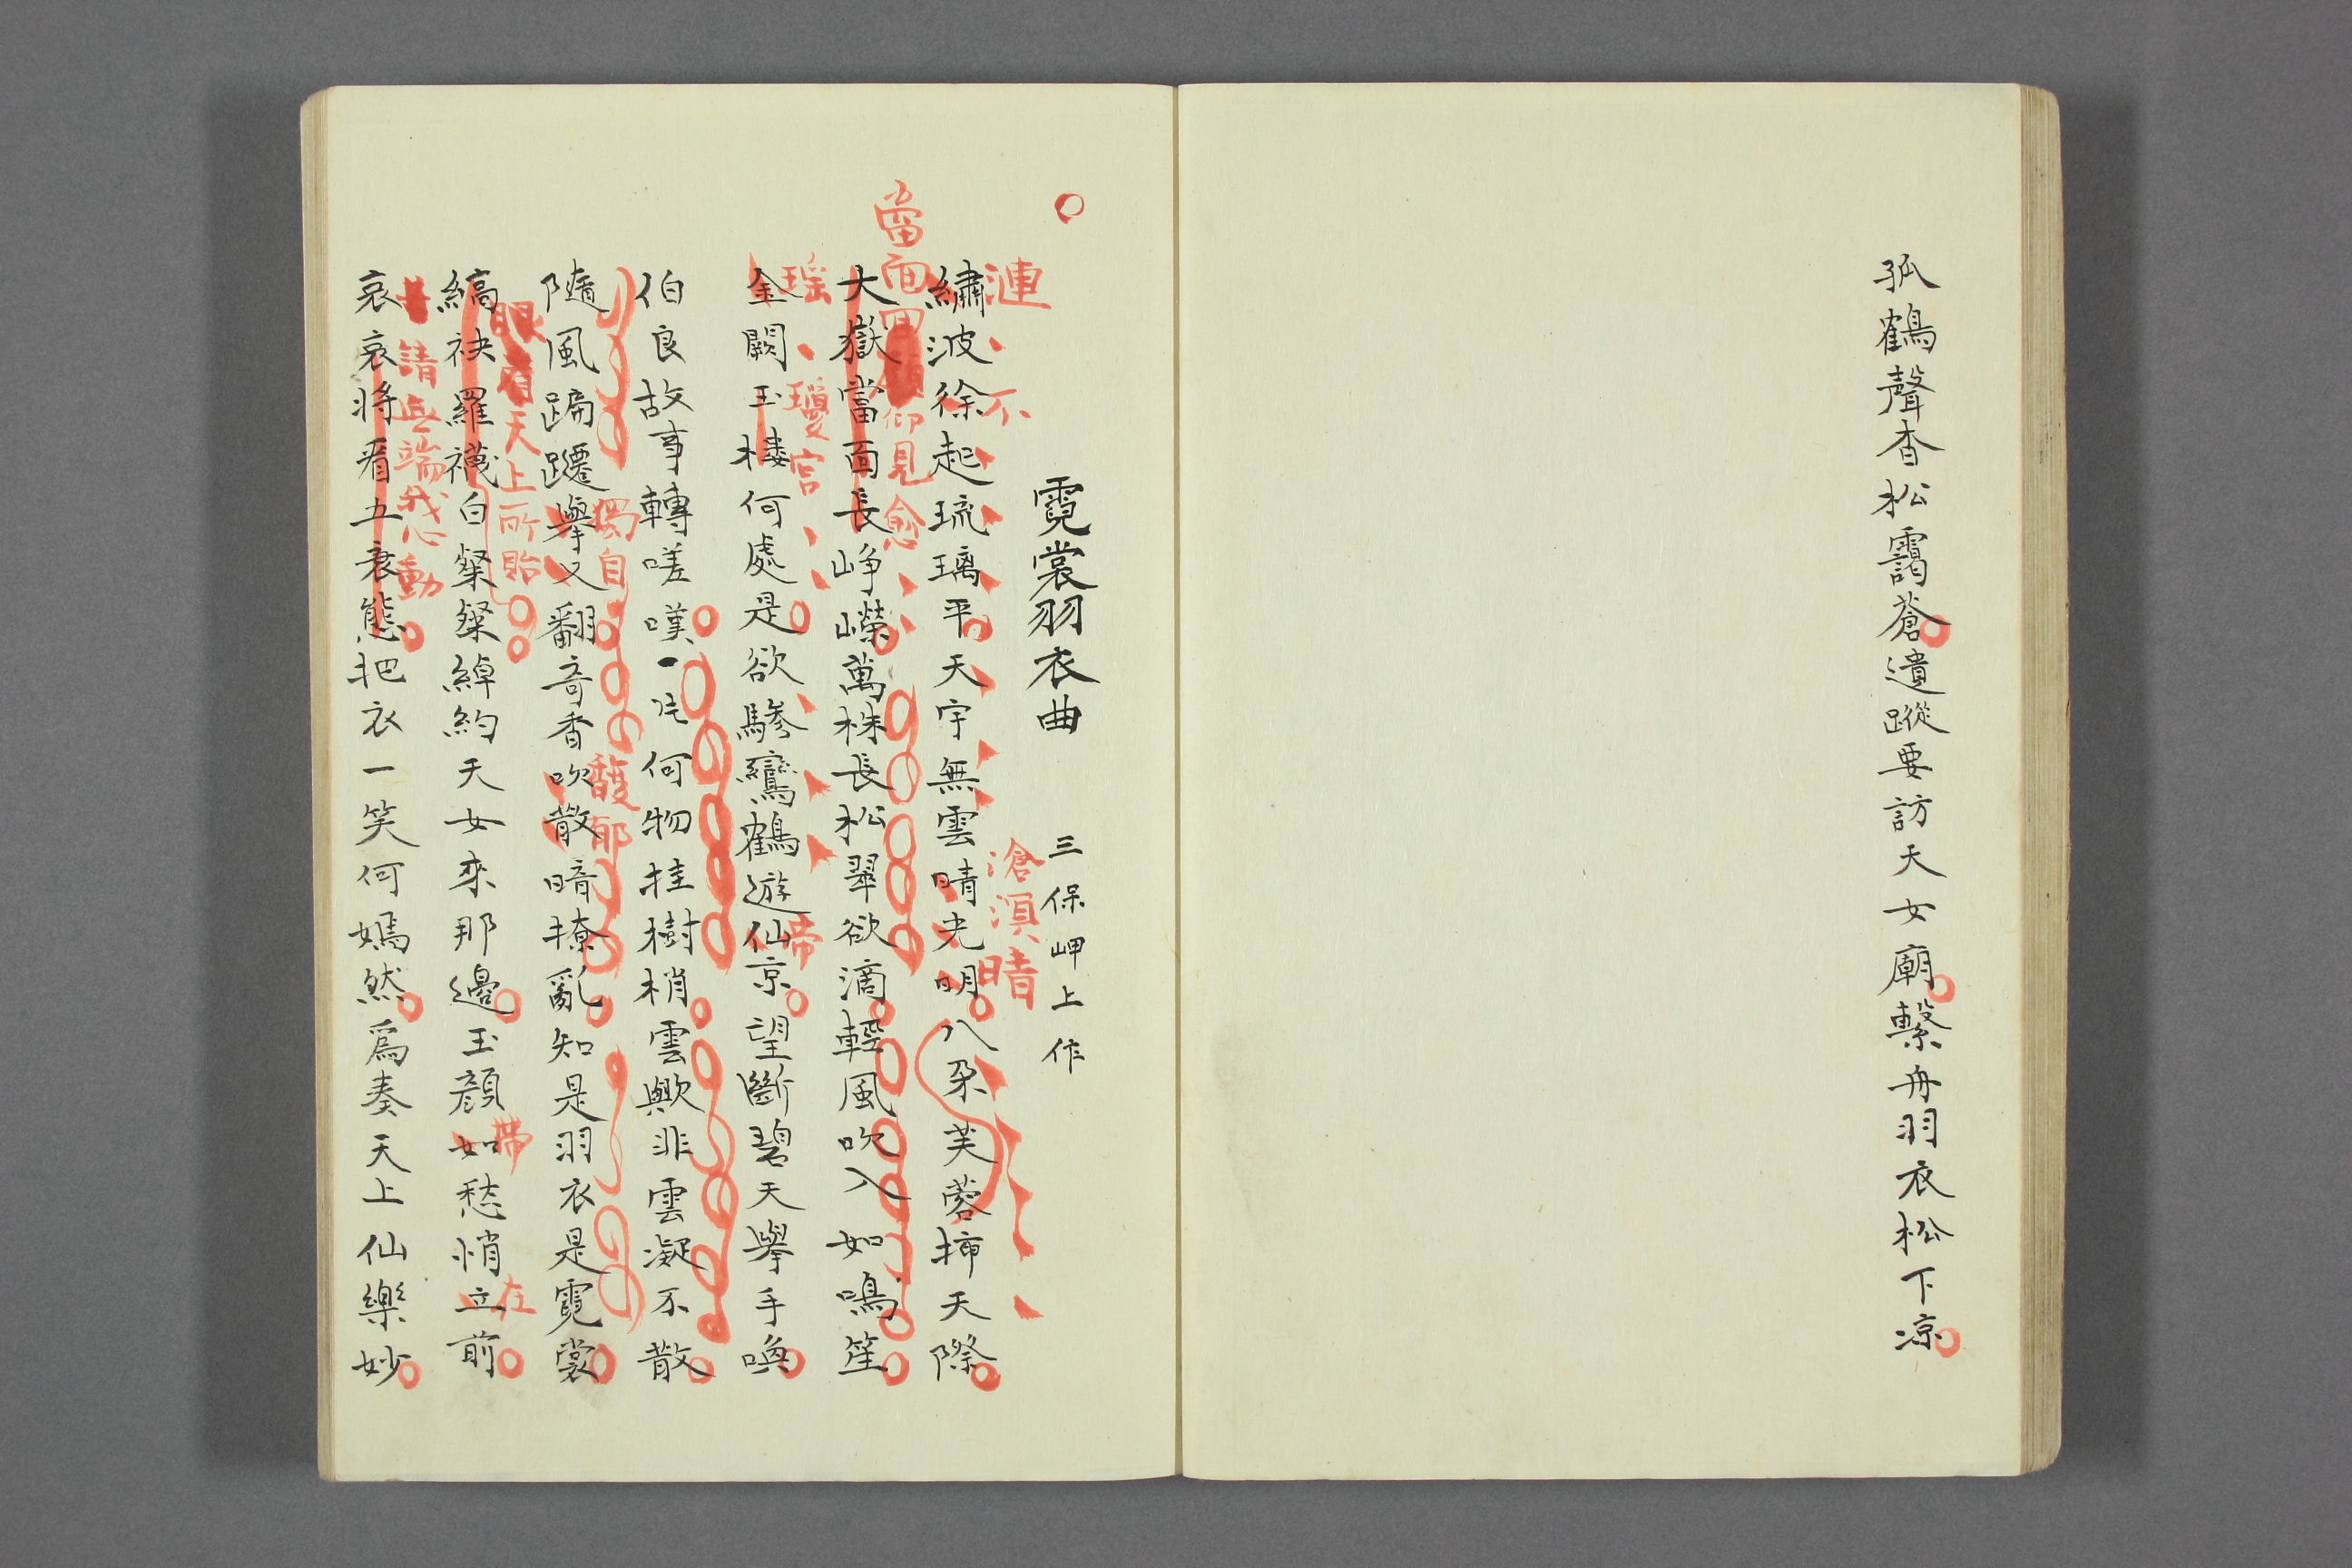 孤鶴聲杳松靄蒼遺蹤要訪天女廟繫舟羽衣松下凉
霓裳羽衣曲 三保岬上作
漣 不 滄溟晴
繡波徐起琉璃平天宇無雲晴光明八朶芙蓉揷天際
當面 仰見 愈
大嶽當面長崢嶸萬株長松翠欲滴輕風吹入如鳴笙
瑤 瓊宮 帝
金闕玉樓何處是欲驂鸞鶴遊仙京望斷碧天擧手喚
伯良故事轉嗟嘆一何物挂樹梢雲歟非雲凝不散
獨自 馥郁
隨風蹁躚擧又翻奇香吹散暗撩亂知是羽衣是霓裳
眼看天上所貽 帶 在
縞袂羅襪白粲粲綽約天女來那邊玉顏如愁悄立前
請無端我心動
哀哀將看五衰態把衣一笑何嫣然爲奏天上仙樂妙